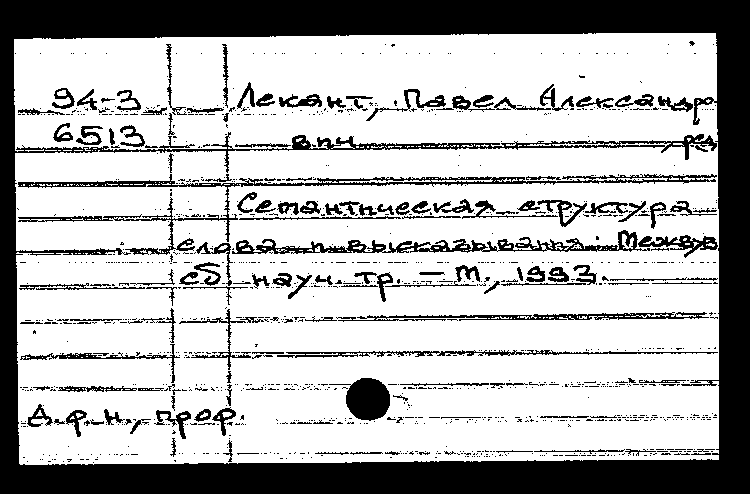 94-3 Лекант, Павел Александро-
6513 вич , ред.
Семантическая структура
слова и высказывания: Межвуз
сб науч. тр. – М., 1993.
Д.ф.н., проф.